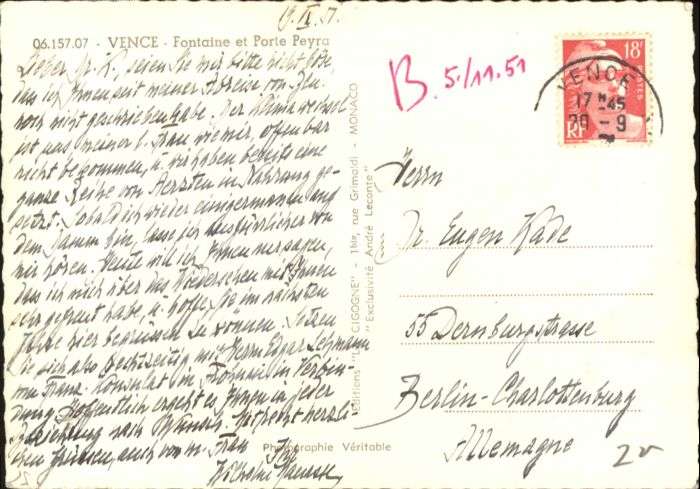 06.157.07 - VENCE - Fontaine et Porte Peyra
Lieber Dr. K., seien Sie mir bitte nicht böse,
dass ich Ihnen seit meiner Abreise von
noch nicht geschrieben habe. Der Klimawechsel
ist uns, meiner l. Frau wie mir, offenbar
nicht bekommen, u. wir haben bereits eine
ganze Reihe von Aerzten in Nahrung ge-
setzt. Sobald ich wieder einigermassen auf
dem Damm bin, lasse ich ausführlicher von
mir hören. Heute will ich Ihnen nur sagen,
dass ich mich über das Wiedersehen mit Ihnen
sehr gefreut habe u. hoffe, Sie im nächsten
Jahre hier begrüssen zu können. Setzen
Sie sich also rechtzeitig mit Herrn Edgar Lehmann
vom Franz. Konsulat in in Verbin-
dung. Hoffentlich ergeht es Ihnen in jeder
Beziehung nach Wunsch. Mit herzli-
chen Grüssen, auch von m. Frau Ihr
Editions "LA CIGOGNE" - 1 bis, rue Grimaldi - MONACO
"Exclusivité André Leconte"
Photographie Véritable
B. 5/11.51
18F
POSTES
RF
VENCE
17 H 45
20 - 9
Herrn
Dr. Eugen Kade
55 Dernburgstrasse
Berlin-Charlottenburg
Allemagne